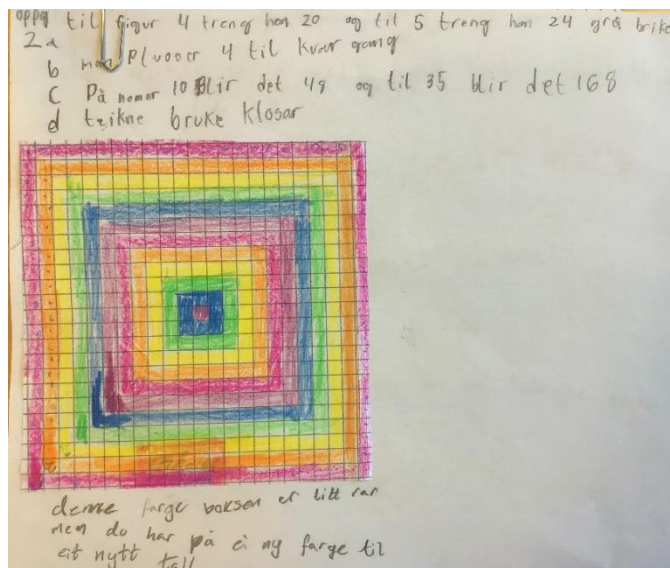 oppg til figur 4 treng han 20 og til 5 treng han 24 grå brike
2a
b man Plusser 4 til kvar gong
c På nomer 10 Blir det 48 og til 35 blir det 168
d teikne bruke klosar
denne farge boksen er litt rar
men du har på ei ny farge til
eit nytt tall